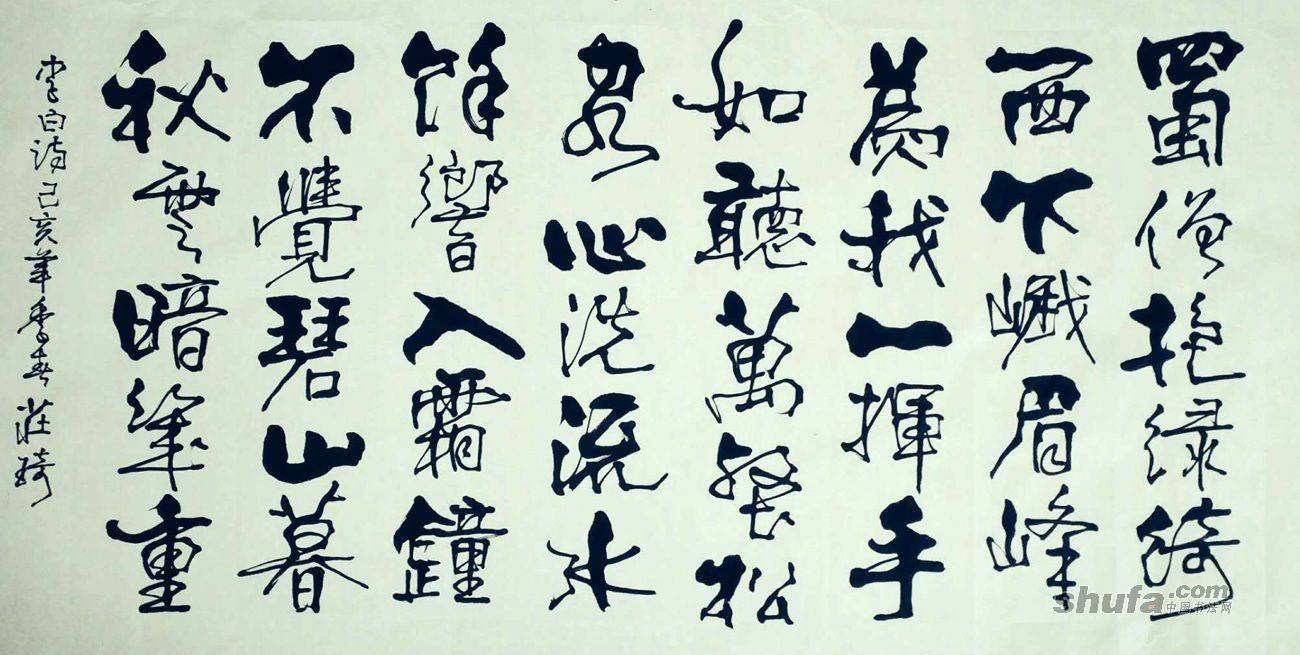 蜀僧抱绿綺
西下峨眉峰
為我一揮手
如聽萬壑松
客心洗流水
餘響入霜鐘
不覺碧山暮
秋雲暗幾重
李白詩己亥年季春 莊琦
shufa.com
中国书法网